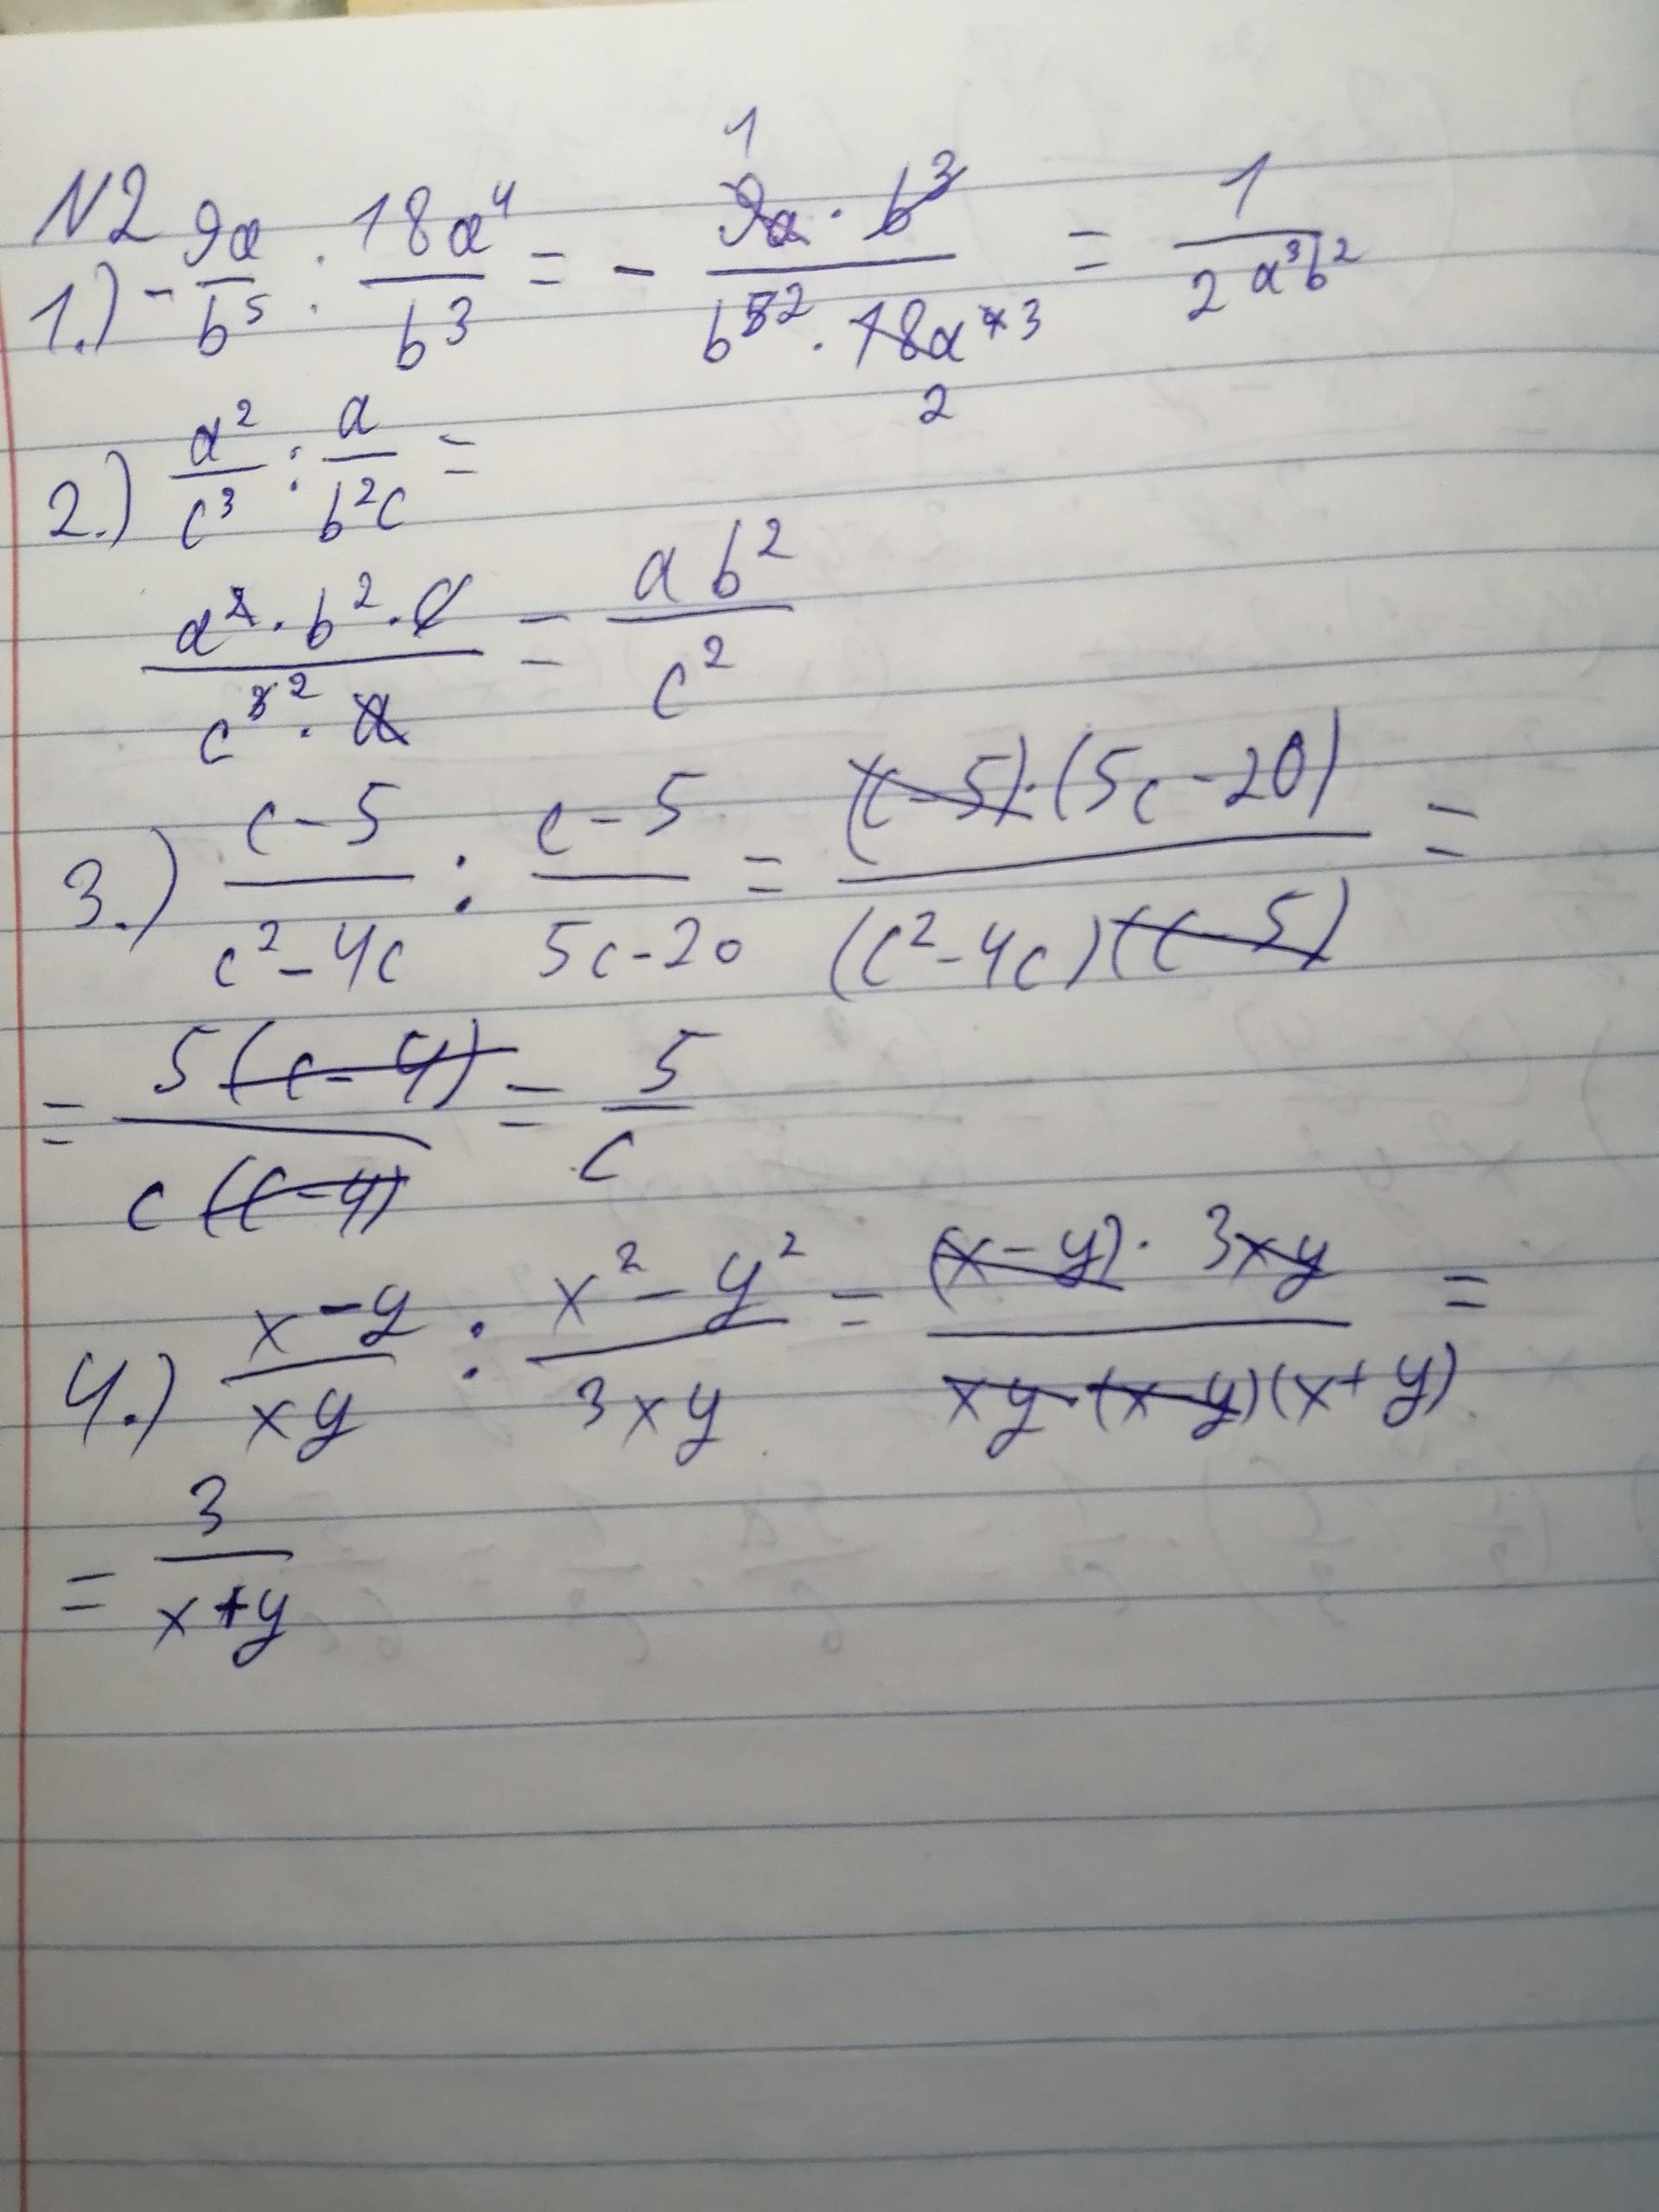 N2
1.) - 9a/b⁵ : 18a⁴/b³ = - 9a · b³ / b⁵ ² · 18a⁴ ³ = 1 / 2a³b²
1
2
2.) a²/c³ : a/b²c =
a² · b² · c / c³ ² · a = ab² / c²
3.) c-5 / c²-4c : c-5 / 5c-20 = (c-5)·(5c-20) / (c²-4c)(c-5) =
= 5(c-4) / c(c-4) = 5/c
4.) x-y / xy : x²-y² / 3xy = (x-y)· 3xy / xy·(x-y)(x+y) =
= 3 / x+y